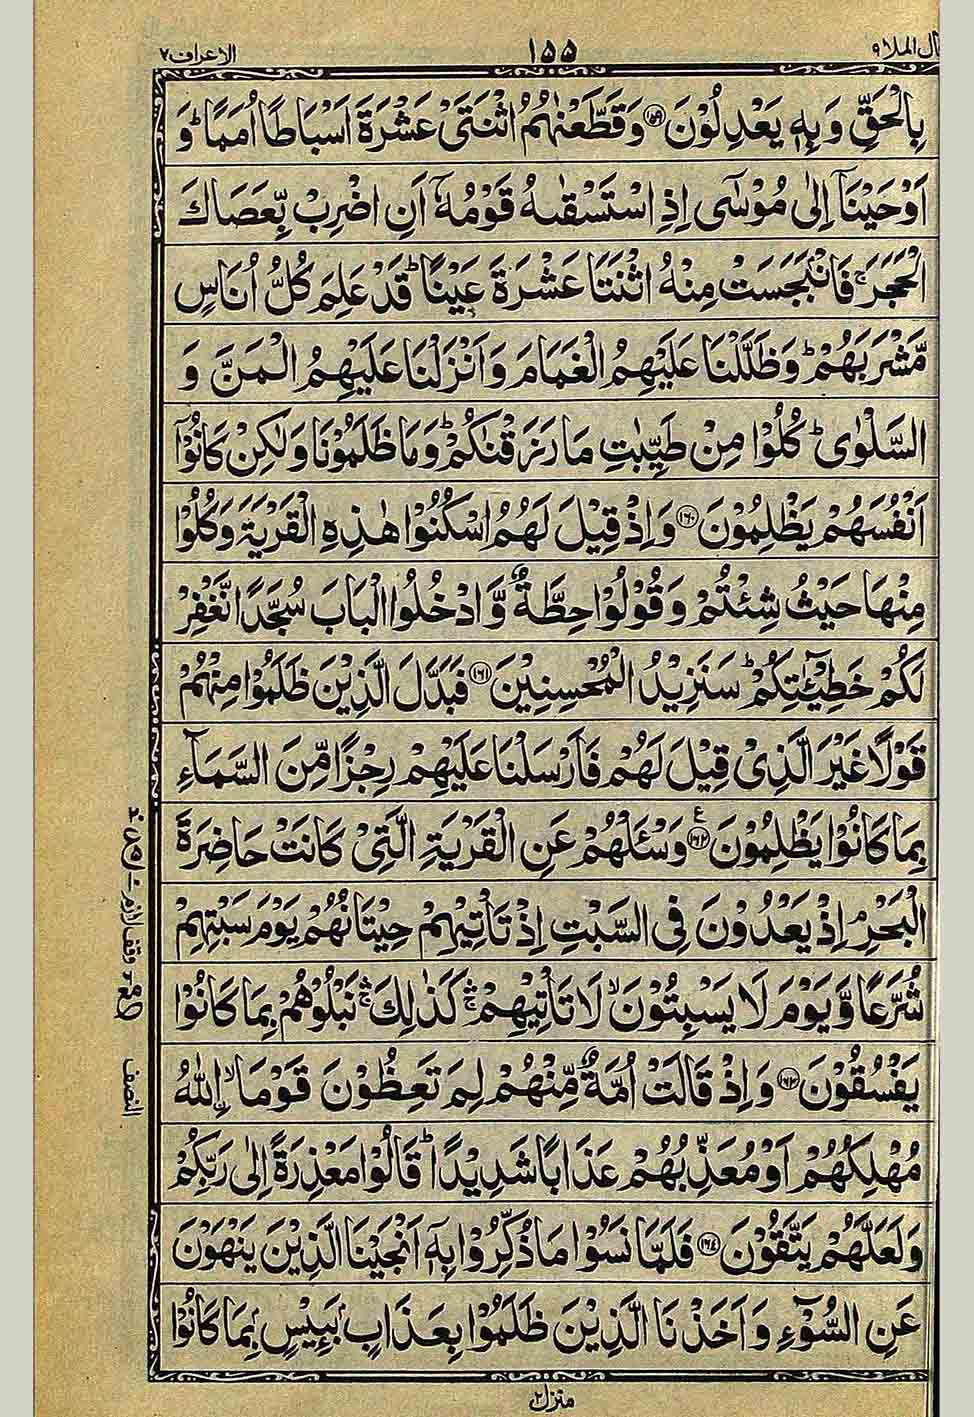 ال الملا٩ ١٥٥ الاعراف٧
بِالْحَقِّ وَبِهٖ يَعْدِلُوْنَ ﴿١٥٩﴾ وَقَطَّعْنٰهُمُ اثْنَتَیْ عَشْرَةَ اَسْبَاطًا اُمَمًا ؕ وَ
اَوْحَيْنَاۤ اِلٰى مُوْسٰۤى اِذِ اسْتَسْقٰىهُ قَوْمُهٗۤ اَنِ اضْرِبْ بِّعَصَاكَ
الْحَجَرَ ۚ فَانْۢبَجَسَتْ مِنْهُ اثْنَتَا عَشْرَةَ عَيْنًا ؕ قَدْ عَلِمَ كُلُّ اُنَاسٍ
مَّشْرَبَهُمْ ؕ وَظَلَّلْنَا عَلَيْهِمُ الْغَمَامَ وَاَنْزَلْنَا عَلَيْهِمُ الْمَنَّ وَ
السَّلْوٰى ؕ كُلُوْا مِنْ طَيِّبٰتِ مَا رَزَقْنٰكُمْ ؕ وَمَا ظَلَمُوْنَا وَلٰكِنْ كَانُوْۤا
اَنْفُسَهُمْ يَظْلِمُوْنَ ﴿١٦٠﴾ وَاِذْ قِيْلَ لَهُمُ اسْكُنُوْا هٰذِهِ الْقَرْيَةَ وَكُلُوْا
مِنْهَا حَيْثُ شِئْتُمْ وَقُوْلُوْا حِطَّةٌ وَّادْخُلُوا الْبَابَ سُجَّدًا نَّغْفِرْ
لَكُمْ خَطِيْٓـٰٔتِكُمْ ؕ سَنَزِيْدُ الْمُحْسِنِيْنَ ﴿١٦١﴾ فَبَدَّلَ الَّذِيْنَ ظَلَمُوْا مِنْهُمْ
قَوْلًا غَيْرَ الَّذِیْ قِيْلَ لَهُمْ فَاَرْسَلْنَا عَلَيْهِمْ رِجْزًا مِّنَ السَّمَآءِ
بِمَا كَانُوْا يَظْلِمُوْنَ ﴿١٦٢﴾ ع وَسْـَٔلْهُمْ عَنِ الْقَرْيَةِ الَّتِیْ كَانَتْ حَاضِرَةَ
الْبَحْرِ ۘ اِذْ يَعْدُوْنَ فِی السَّبْتِ اِذْ تَاْتِيْهِمْ حِيْتَانُهُمْ يَوْمَ سَبْتِهِمْ
شُرَّعًا وَّيَوْمَ لَا يَسْبِتُوْنَ ۙ لَا تَاْتِيْهِمْ ۛۚ كَذٰلِكَ ۛۚ نَبْلُوْهُمْ بِمَا كَانُوْا
يَفْسُقُوْنَ ﴿١٦٣﴾ وَاِذْ قَالَتْ اُمَّةٌ مِّنْهُمْ لِمَ تَعِظُوْنَ قَوْمَا ۙ اۨللّٰهُ
مُهْلِكُهُمْ اَوْ مُعَذِّبُهُمْ عَذَابًا شَدِيْدًا ؕ قَالُوْا مَعْذِرَةً اِلٰى رَبِّكُمْ
وَلَعَلَّهُمْ يَتَّقُوْنَ ﴿١٦٤﴾ فَلَمَّا نَسُوْا مَا ذُكِّرُوْا بِهٖۤ اَنْجَيْنَا الَّذِيْنَ يَنْهَوْنَ
عَنِ السُّوْٓءِ وَاَخَذْنَا الَّذِيْنَ ظَلَمُوْا بِعَذَابٍۭ بَـِٔيْسٍۭ بِمَا كَانُوْا
منزل٢
النصف